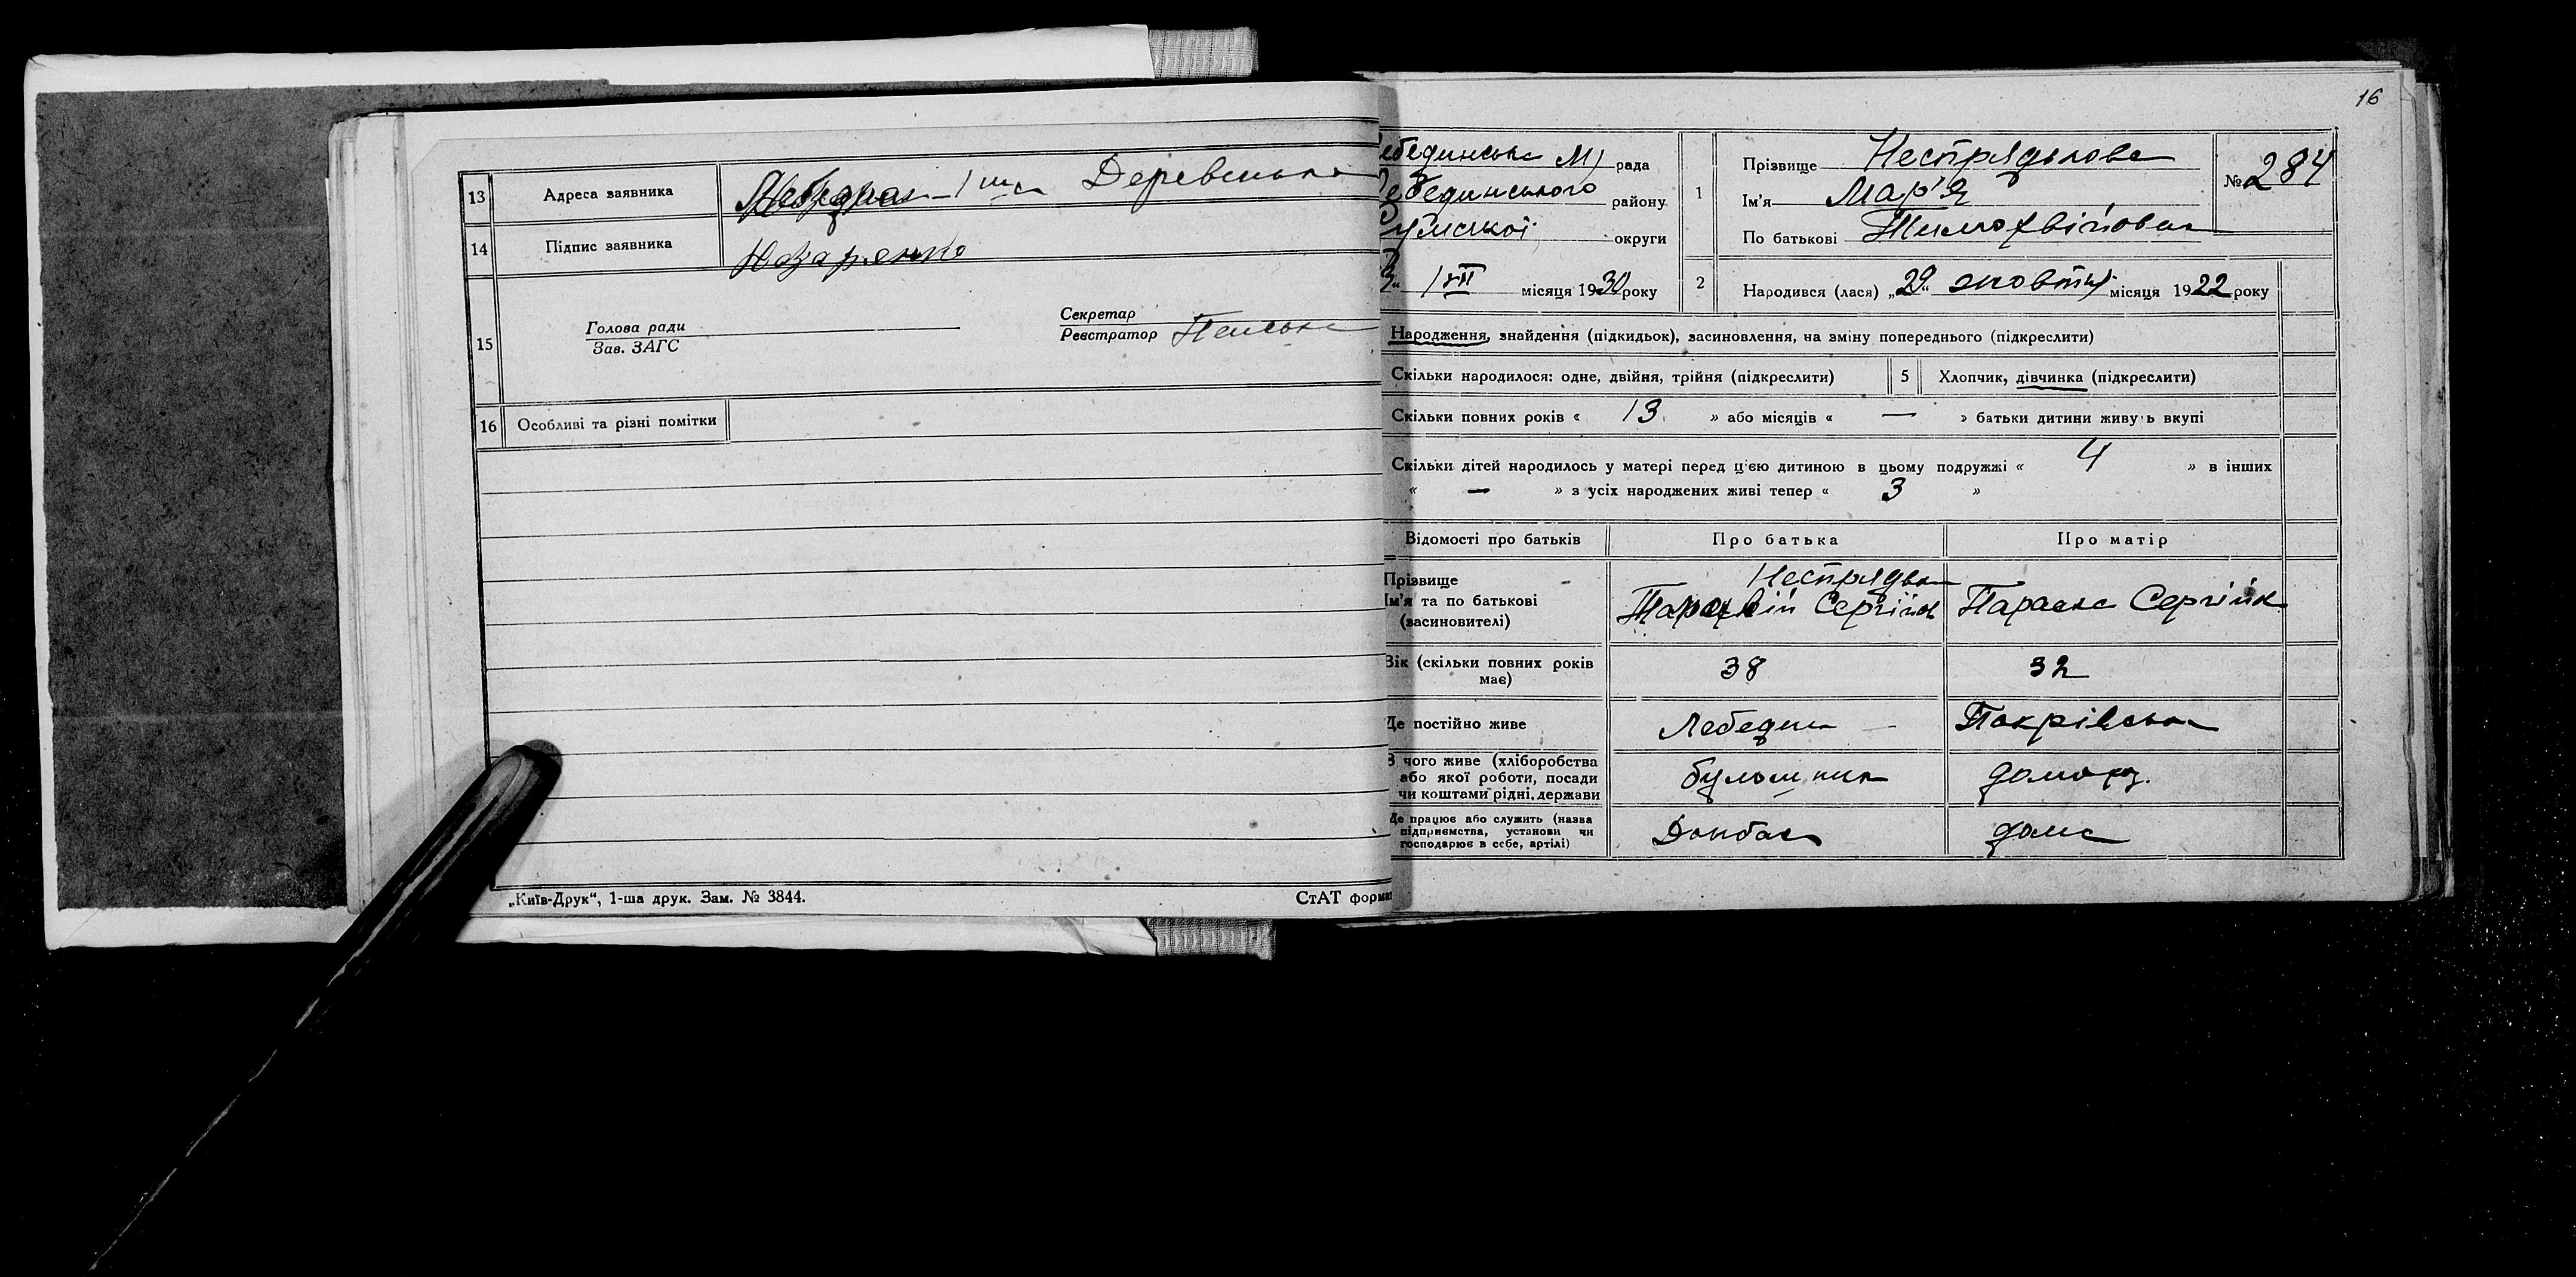 13 Адреса заявника 1ша Деревенька
14 Підпис заявника Назаренко
15 Голова ради
Зав. ЗАГС
Секретар
Реєстратор
16 Особливі та різні помітки
„Київ-Друк“, 1-ша друк. Зам. № 3844.
СтАТ формат
16
Лебединська М рада
Лебединського району
Сумської округи
3“ VII місяця 1930 року
1 Прізвище Неспрядькова
Ім'я Мар'я
По батькові Тимофвіївна
№ 284
2 Народився (лася) „29“ жовтня місяця 1922 року
Народження, знайдення (підкидьок), засиновлення, на зміну попереднього (підкреслити)
Скільки народилося: одне, двійня, трійня (підкреслити) 5 Хлопчик, дівчинка (підкреслити)
Скільки повних років « 13 » або місяців « — » батьки дитини живуть вкупі
Скільки дітей народилось у матері перед цією дитиною в цьому подружжі « 4 » в інших
« — » з усіх народжених живі тепер « 3 »
Відомості про батьків Про батька Про матір
Прізвище
Ім'я та по батькові Сергійов Параска Сергійов
(засиновителі)
Вік (скільки повних років має) 38 32
Де постійно живе Лебедин — Покрівська
З чого живе (хліборобства
або якої роботи, посади
чи коштами рідні, держави домогоз.
Де працює або служить (назва
підприємства, установи чи
господарює в себе, артілі) Донбас дома